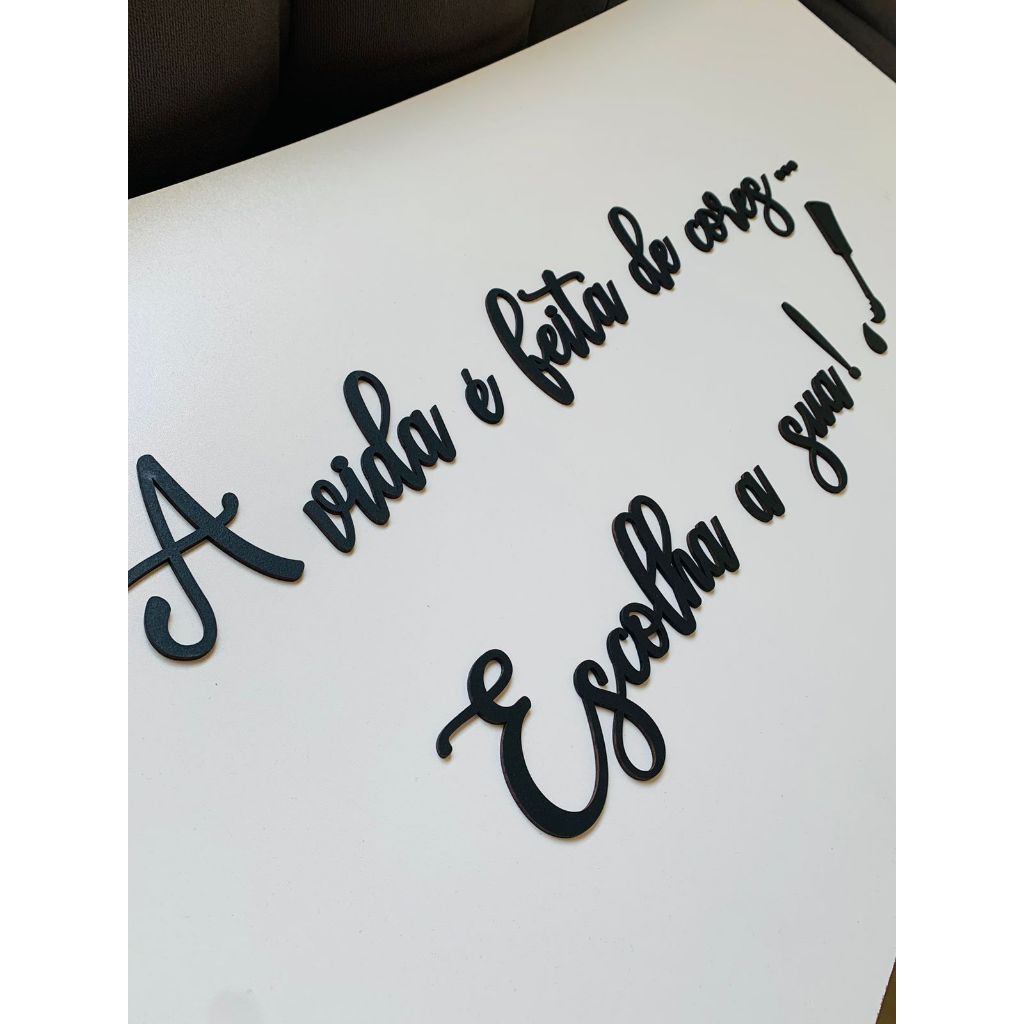 A vida é feita de cores...
Escolha a sua!